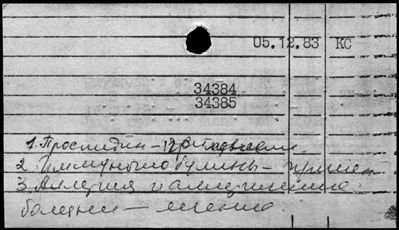 05.12.83 КС
34384
34385
1. Проспидин –
2. Иммуноглобулины –
3. Аллергия и аллергические
болезни – лечение